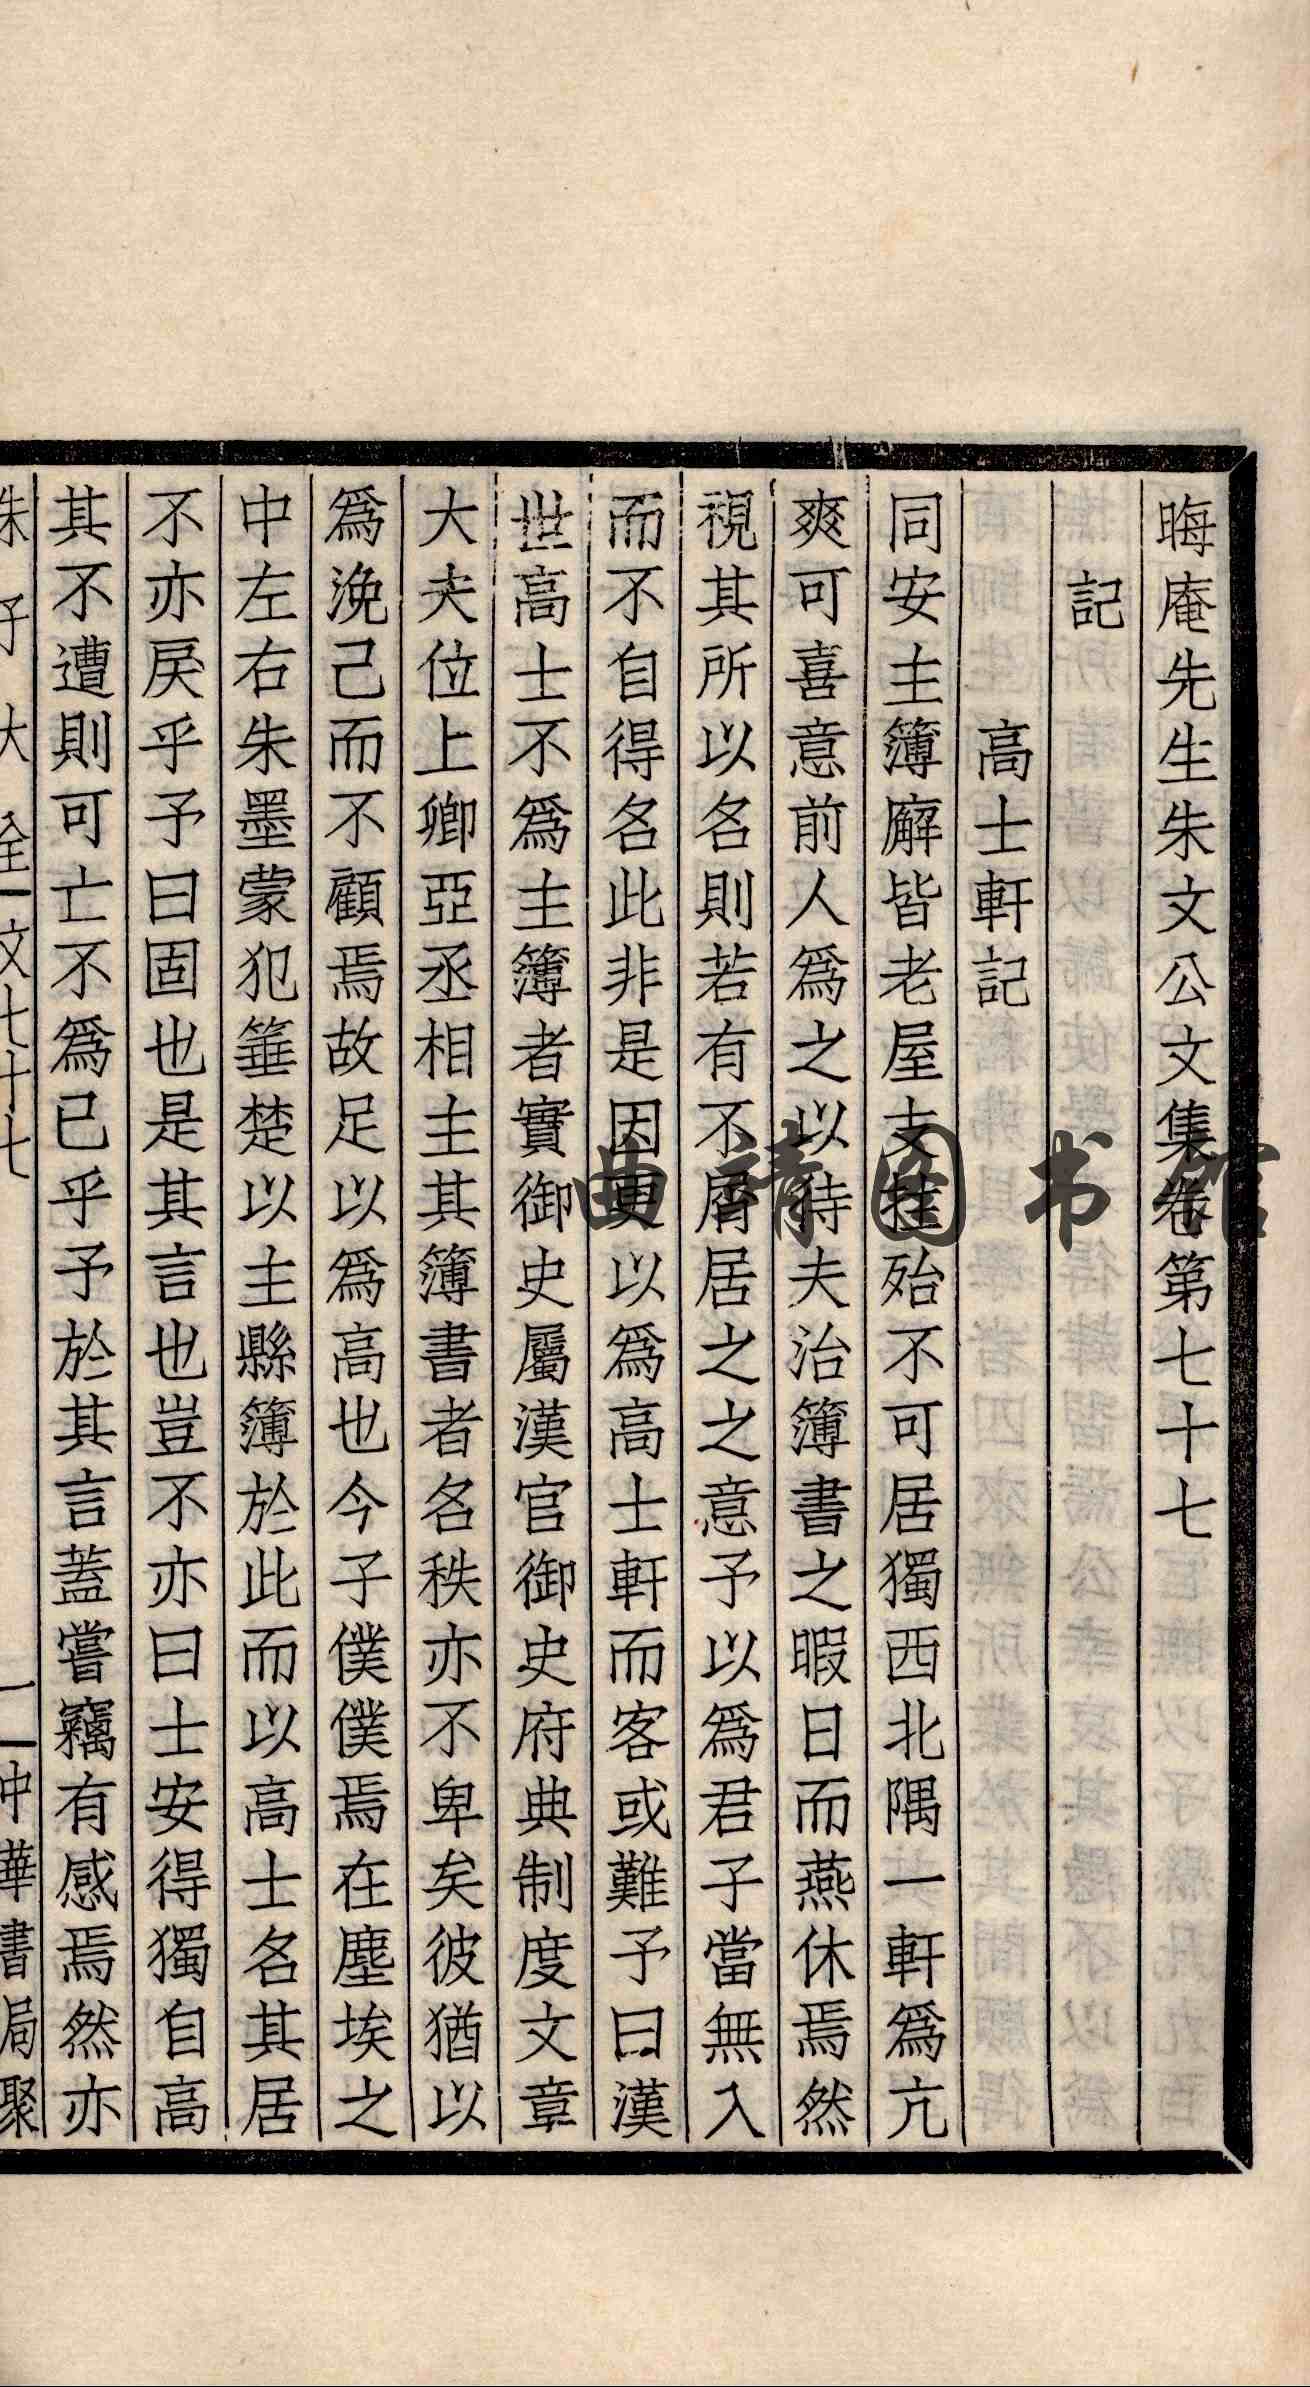 晦庵先生朱文公文集卷第七十七
記
高士軒記
同安主簿廨皆老屋支拄殆不可居獨西北隅一軒爲亢
爽可喜意前人爲之以待夫治簿書之暇日而燕休焉然
視其所以名則若有不屑居之之意予以爲君子當無入
而不自得名此非是因更以爲高士軒而客或難予曰漢
世高士不爲主簿者實御史屬漢官御史府典制度文章
大夫位上卿亞丞相主其簿書者名秩亦不卑矣彼猶以
爲浼己而不顧焉故足以爲高也今子僕僕焉在塵埃之
中左右朱墨蒙犯箠楚以主縣簿於此而以高士名其居
不亦戾乎予曰固也是其言也豈不亦曰士安得獨自高
其不遭則可亡不爲已乎予於其言蓋嘗竊有感焉然亦
朱子大全 文七十七 一 中華書局聚
曲靖图书馆